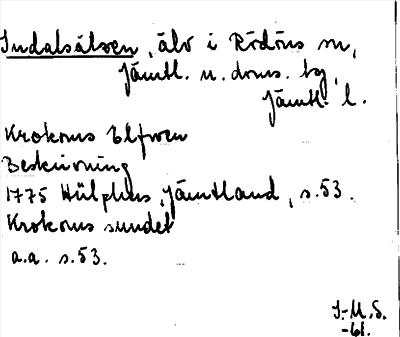 Indalsälven, älv i Rödöns sn,
Jämtl. n. doms. tg,
Jämtl. l.
Krokoms Elfwen
Beskrivning
1775 Hülphers, Jämtland, s. 53.
Krokoms sundet
a.a. s. 53.
I-M.S.
-61.